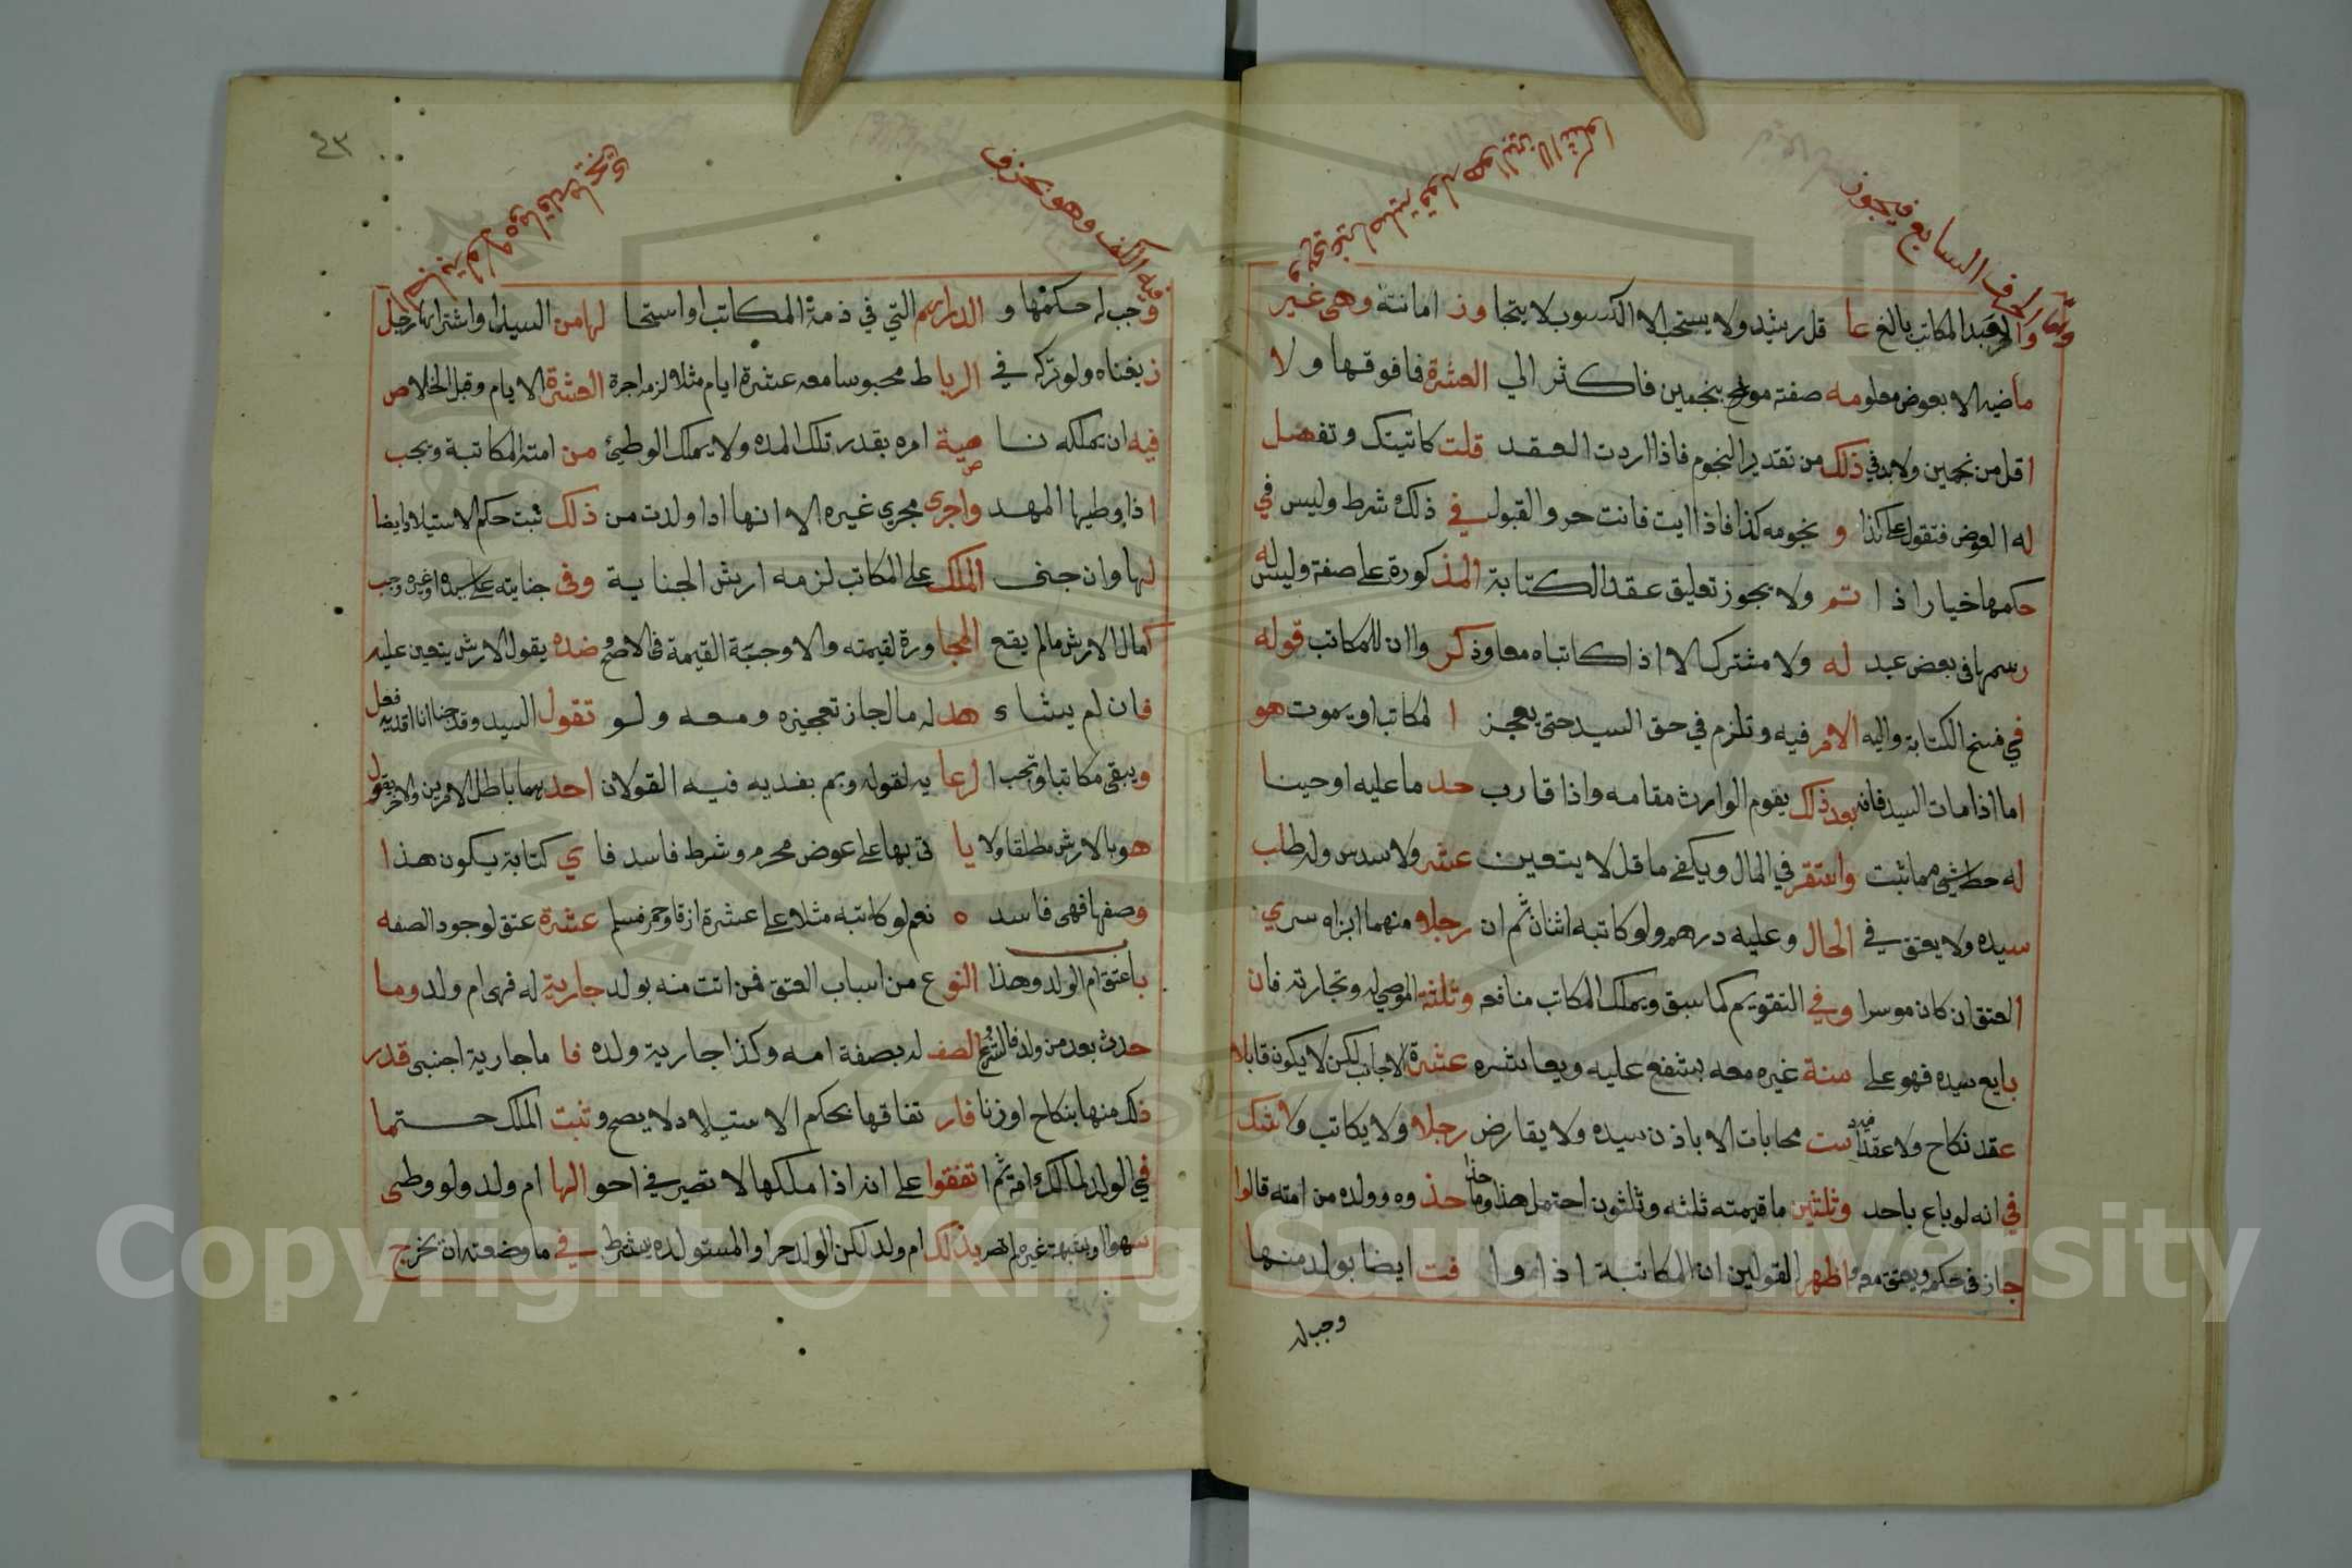 واما الحرف السابع فيجوز
وهي غير اصلية قوله هو الزمن الا انتكوا
والعبد المكاتب بالغ عا قل رشيد ولا يستحب الا الكسوب لا يتجا وز امانته وهى غير
ماضيه الا بعوض معلو مه صفته موجل بنجمين فاكثر الي العشرة فما فوقها ولا
اقل من نجمين ولابد في ذلك من تقدير النجوم فاذا اردت العقد قلت كاتبتك وتفصل
له العوض فتقول على كذا و نجومه كذا فاذا اديت فانت حر والقبول في ذلك شرط وليس في
حكمها خيار اذا تم ولا يجوز تعليق عقد الكتابة المذ كورة على صفة وليس له
رسمها في بعض عبد له ولا مشترك الا اذا كاتباه معا وذكر وا ان للمكاتب قوله
في فسخ الكتابة واليه الامر فيه وتلزم في حق السيد حتى يعجز ا لمكاتب او يموت هو
اما اذا مات السيد فانه بعد ذلك يقوم الوارث مقامه واذا قارب حد ما عليه او حينا
له حط شي مما ثبت واستقر في المال ويكفي ما قل لا يتعين عشر ولا سدس وله طلب
سيده ولا يعتق في الحال وعليه درهم ولو كاتبه اثنان ثم ان رجلا منهما ابراه سري
العتق ان كان موسرا وفي التقويم كما سبق ويملك المكاتب منافعه وثلثة الموصي له وتجارته فان
بايع سيده فهو على سنة غيره معه يشفع عليه ويعا شره عشرة الاجانب لكن لا يكون قابلا
عقد نكاح ولا عقدا فيه ست محابات الا باذن سيده ولا يقارض رجلا ولا يكاتب ولا شك
في انه لو باع باحد وثلثين ما قيمته ثلثه وثلثون احتمل هذا وما حذ وه وولده من امته قالوا
جاز في حكمه ويعتق معه واظهر القولين ان المكاتبة اذا وا فت ايضا بولد منها
وجب له
وفيه الكف وهو بحذف
٤٣
وجب له حكمها و الدراهم التي في ذمة المكاتب او استحا لها من السيد او اشتراها رجل
ذ يغناه ولو تركه في الربا ط محبوسا معه عشرة ايام مثلا لزمه اجرة العشرة الايام وقبل الخلاص
فيه ان يملكه نا صية امره بقدر تلك المده ولا يملك الوطئ من امته المكاتبة ويجب
اذا وطيها المهد واجرى مجري غيره الا انها اذا ولدت من ذلك ثبت حكم الاستيلاد ايضا
لها وان جنى الملك على المكاتب لزمه ارش الجناية وفى جنايته على سيده او غيره وجب
كمال الارش مالم يقع المجا ورة لقيمته والا وجبة القيمة في الاصح ضده يقول الارش يتعين عليه
فان لم يشاء هد له مال جاز تعجيزه ومعه ولو تقول السيد وقد جنا انا افديه فعل
ويبقى مكاتبا وتجب ا لرعا يه لقوله وبم يفديه فيه القولان احد هما باقل الامرين والاخر يقول
هو بالارش مطلقا ولا يا تى بها على عوض محرم وشرط فاسد فا ي كتابة يكون هذا
وصفها فهى فاسد ه نعم لو كاتبه مثلا على عشرة ازقا وخمر فسلم عشرة عتق لوجود الصفه
باعتق ام الولد وهذا النوع من اسباب العتق فمن اتت منه بولد جارية له فهى ام ولد وما
حدث بعد من ولد فالشرع الصف له بصفة امه وكذا جارية ولده فا ما جارية اجنبى قدر
ذلك منها بنكاح او زنا فار تفاقها بحكم الاستيلاد لا يصح وتثبت الملك حتما
في الولد لمالك امه ثم ا تفقوا على انه اذا ملكها لا تصير في احو الها ام ولد ولو وطى
سهوا او بشبهة غيره لم تصر بذلك ام ولد لكن الولد حر او المستولده يشترط في ما وضعته ان يخرج
Copyright © King Saud University